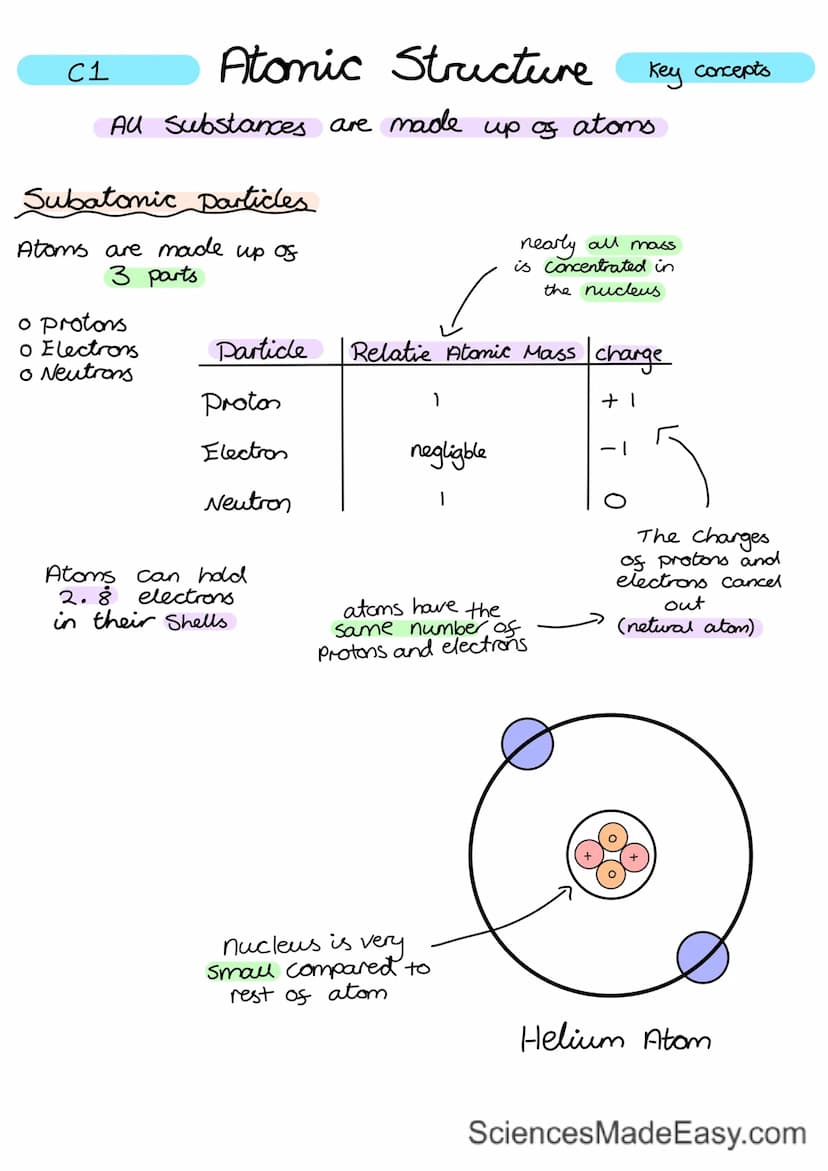 C1
Atomic Structure
Key concepts
All Substances are made up of atoms
Subatomic Particles
Atoms are made up of
3 parts
nearly all mass
is concentrated in
the nucleus
o Protons
o Electrons
o Neutrons
Particle Relatie Atomic Mass charge
Proton 1 +1
Electron negligble -1
Neutron 1 0
The Charges
of protons and
electrons cancel
out
(netural atom)
Atoms can hold
2.8 electrons
in their Shells
atoms have the
same number of
protons and electrons
o
+ +
o
nucleus is very
small compared to
rest of atom
Helium Atom
SciencesMadeEasy.com